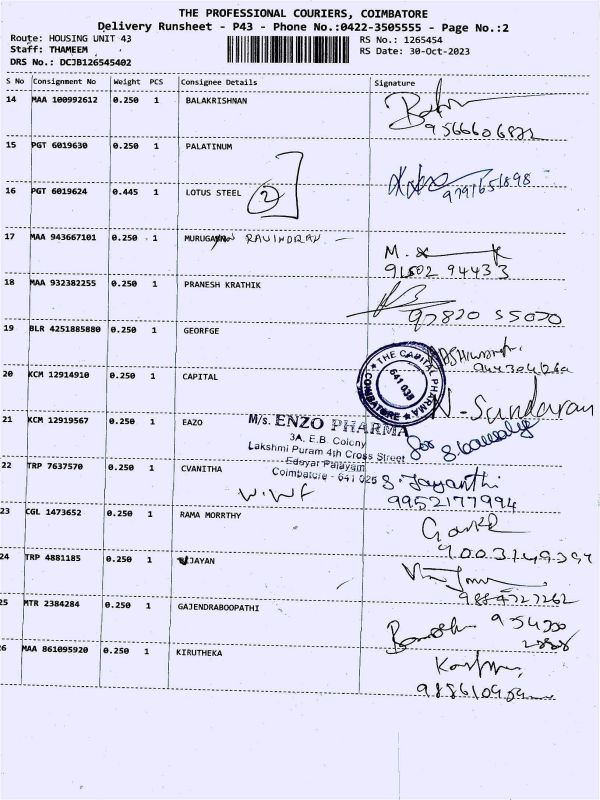 THE PROFESSIONAL COURIERS, COIMBATORE
Delivery Runsheet - P43 - Phone No.:0422-3505555 - Page No.:2
Route: HOUSING UNIT 43
RS No.: 1265454
Staff: THAMEEM
RS Date: 30-Oct-2023
DRS No.: DCJB126545402
S No Consignment No Weight PCS Consignee Details Signature
14 MAA 100992612 0.250 1 BALAKRISHNAN
9566606872
15 PGT 6019630 0.250 1 PALATINUM
9791651898
16 PGT 6019624 0.445 1 LOTUS STEEL
2
17 MAA 943667101 0.250 1 MURUGAN RAVINDRAN
M.
91502 94433
18 MAA 932382255 0.250 1 PRANESH KRATHIK
97870 55070
19 BLR 4251885880 0.250 1 GEORFGE
THE CAPITAL PHARMA
641 038
COIMBATORE
20 KCM 12914910 0.250 1 CAPITAL
N. Sundaran
21 KCM 12919567 0.250 1 EAZO
M/s. ENZO PHARMA
3A, E.B. Colony
Lakshmi Puram 4th Cross Street
Edayar Palayam
Coimbatore - 641 025
22 TRP 7637570 0.250 1 CVANITHA
S. Jayanthi
9952177994
W.WF
23 CGL 1473652 0.250 1 RAMA MORRTHY
24 TRP 4881185 0.250 1 VIJAYAN
25 MTR 2384284 0.250 1 GAJENDRABOOPATHI
26 MAA 861095920 0.250 1 KIRUTHEKA